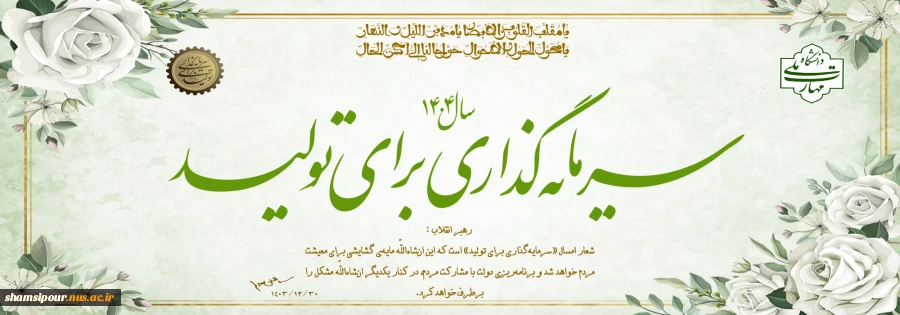 یا مقلب القلوب و الابصار یا مدبر اللیل و النهار
یا محول الحول و الاحوال حول حالنا الی احسن الحال
دانشگاه
ملی
مهارت
سال ۱۴۰۴
سرمایه گذاری برای تولید
رهبر انقلاب :
شعار امسال «سرمایه‌گذاری برای تولید» است که این ان‌شاءاللّه مایه‌ی گشایشی برای معیشت
مردم خواهد شد و برنامه‌ریزی دولت با مشارکت مردم در کنار یکدیگر ان‌شاءاللّه مشکل را
برطرف خواهد کرد.
۱۴۰۳/۱۲/۳۰
shamsipour.nus.ac.ir